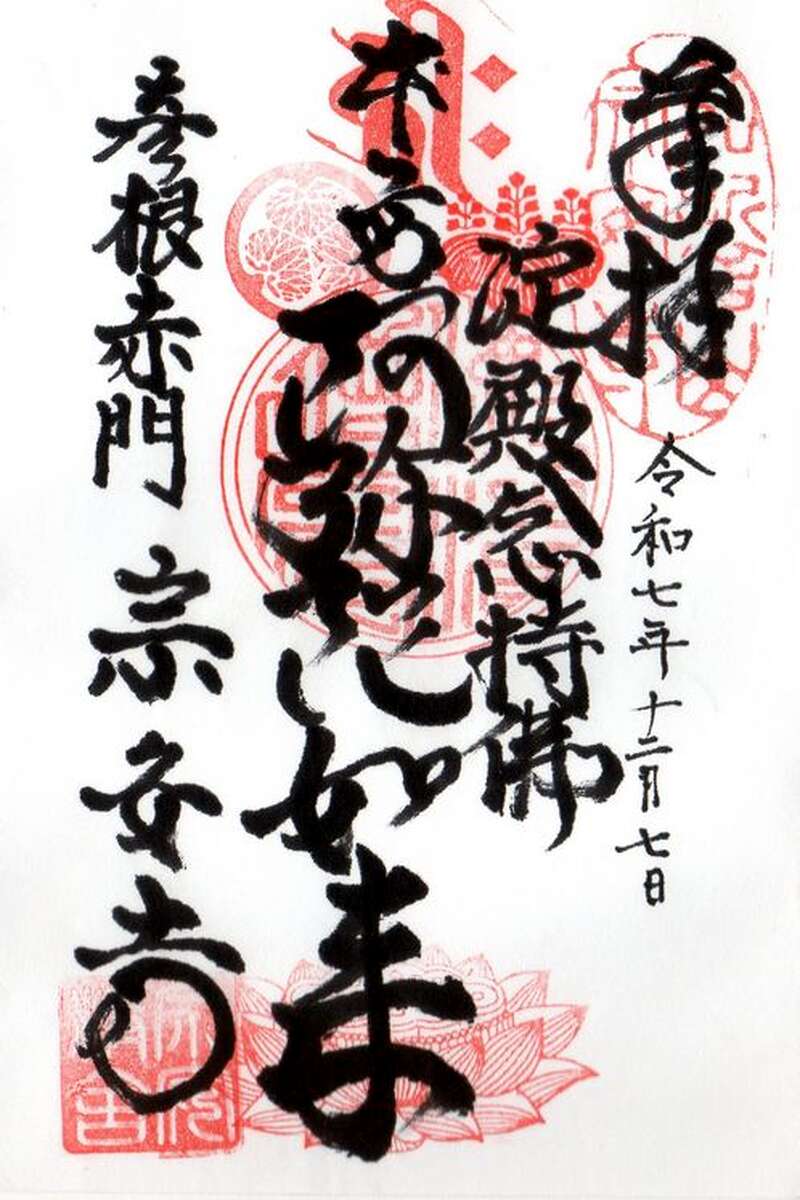 奉拝
令和七年十二月七日
淀殿念持佛
本尊
阿弥陀如来
彦根赤門
宗安寺